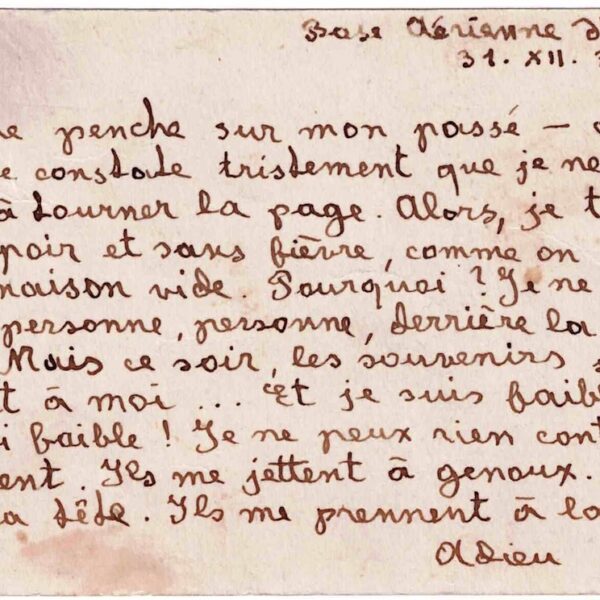 Base Aérienne d'
31. XII. 3
penche sur mon passé –
constate tristement que je ne
à tourner la page. Alors, je t
poir et sans fièvre, comme on
maison vide. Pourquoi ? Je ne
personne, personne, derrière la
Mais ce soir, les souvenirs s
t à moi ... Et je suis faibl
i faible ! Je ne peux rien cont
ent. Ils me jettent à genoux.
a tête. Ils me prennent à la
Adieu